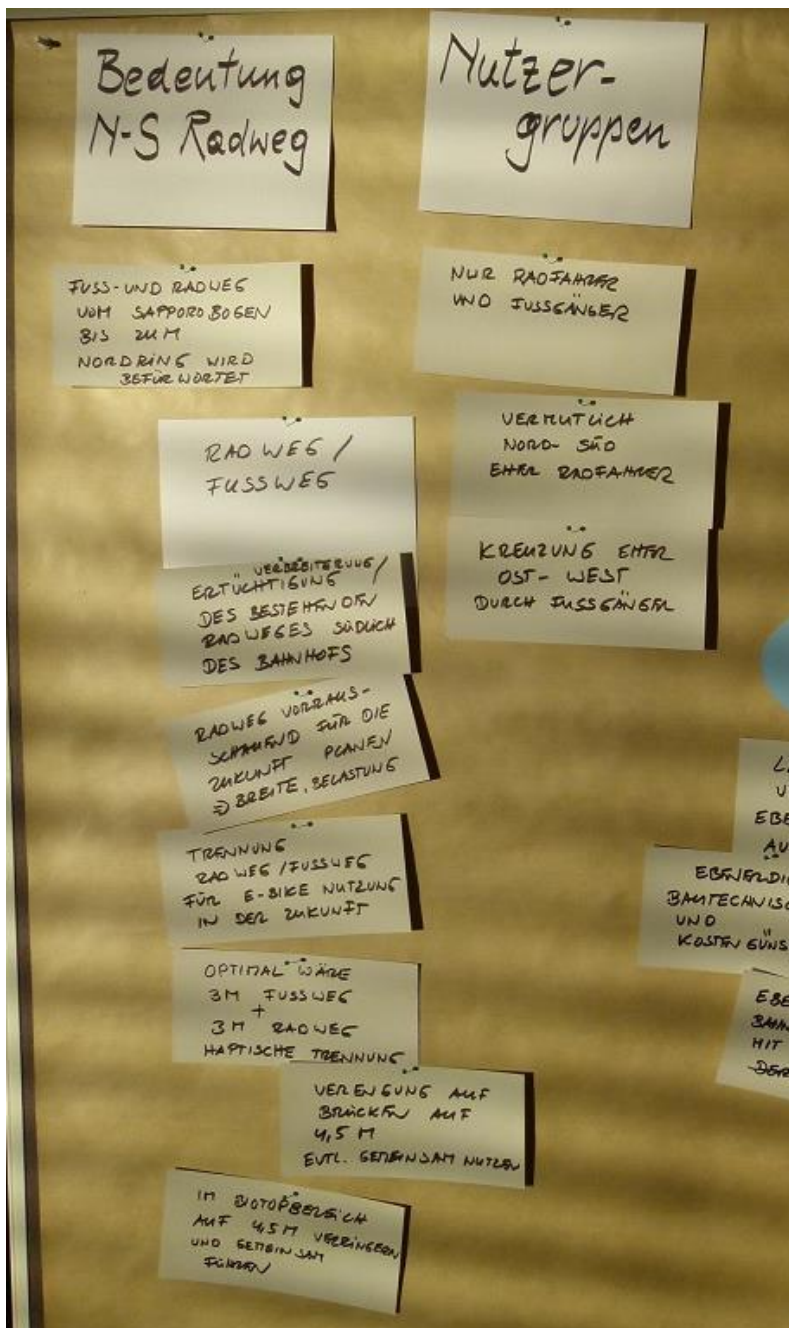 Bedeutung
N-S Radweg
FUSS-UND RADWEG
VOM SAPPOROBOGEN
BIS ZUM
NORDRING WIRD
BEFÜRWORTET
RADWEG /
FUSSWEG
VERBREITERUNG /
ERTÜCHTIGUNG
DES BESTEHENDEN
RADWEGES SÜDLICH
DES BAHNHOFS
RADWEG VORRAUS-
SCHAUEND FÜR DIE
ZUKUNFT PLANEN
⇒ BREITE, BELASTUNG
TRENNUNG
RADWEG / FUSSWEG
FÜR E-BIKE NUTZUNG
IN DER ZUKUNFT
OPTIMAL WÄRE
3M FUSSWEG
+
3M RADWEG
HAPTISCHE TRENNUNG
VERENGUNG AUF
BRÜCKEN AUF
4,5 M
EVTL. GEMEINSAM NUTZEN
IM BIOTOPBEREICH
AUF 4,5M VERRINGERN
UND GEMEINSAM
FÜHREN
Nutzer-
gruppen
NUR RADFAHRER
UND FUSSGÄNGER
VERMUTLICH
NORD- SÜD
EHER RADFAHRER
KREUZUNG EHER
OST- WEST
DURCH FUSSGÄNGER
EBE
AU
EBENERDI
BAUTECHNISC
UND
KOSTENGÜNS
EBE
BAHN
MIT
DER